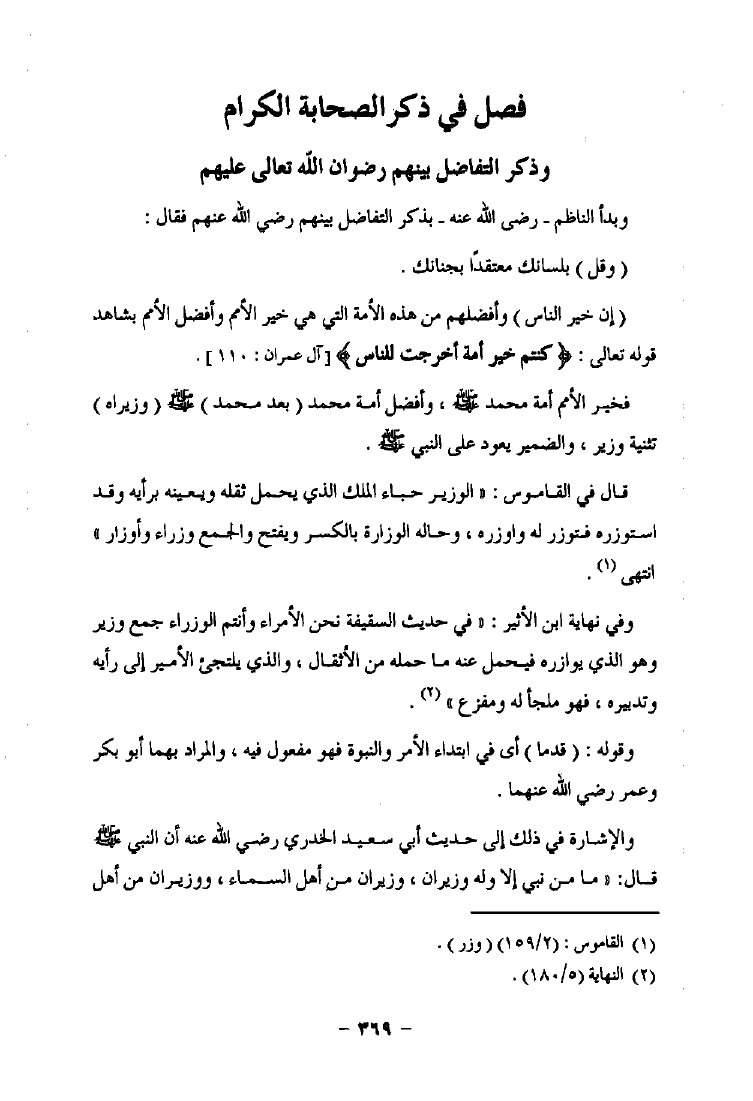 فصل في ذكر الصحابة الكرام
وذكر التفاضل بينهم رضوان الله تعالى عليهم
وبدأ الناظم ـ رضى الله عنه ـ بذكر التفاضل بينهم رضي الله عنهم فقال :
( وقل ) بلسانك معتقدًا بجنانك .
( إن خير الناس ) وأفضلهم من هذه الأمة التي هي خير الأمم وأفضل الأمم بشاهد
قوله تعالى : ﴿ كنتم خير أمة أخرجت للناس ﴾ [ آل عمران : ١١٠ ] .
فخير الأمم أمة محمد ﷺ ، وأفضل أمة محمد ( بعد محمد ) ﷺ ( وزيراه )
تثنية وزير ، والضمير يعود على النبي ﷺ .
قال في القاموس : « الوزير حباء الملك الذي يحمل ثقله ويعينه برأيه وقد
استوزره فتوزر له واوزره ، وحاله الوزارة بالكسر ويفتح والجمع وزراء وأوزار »
انتهى (١) .
وفي نهاية ابن الأثير : « في حديث السقيفة نحن الأمراء وأنتم الوزراء جمع وزير
وهو الذي يوازره فيحمل عنه ما حمله من الأثقال ، والذي يلتجئ الأمير إلى رأيه
وتدبيره ، فهو ملجأ له ومفزع » (٢) .
وقوله : ( قدما ) أى في ابتداء الأمر والنبوة فهو مفعول فيه ، والمراد بهما أبو بكر
وعمر رضي الله عنهما .
والإشارة في ذلك إلى حديث أبي سعيد الخدري رضي الله عنه أن النبي ﷺ
قال: « ما من نبي إلا وله وزيران ، وزيران من أهل السماء ، ووزيران من أهل
(١) القاموس : (١٥٩/٢) (وزر) .
(٢) النهاية (١٨٠/٥) .
- ٣٦٩ -